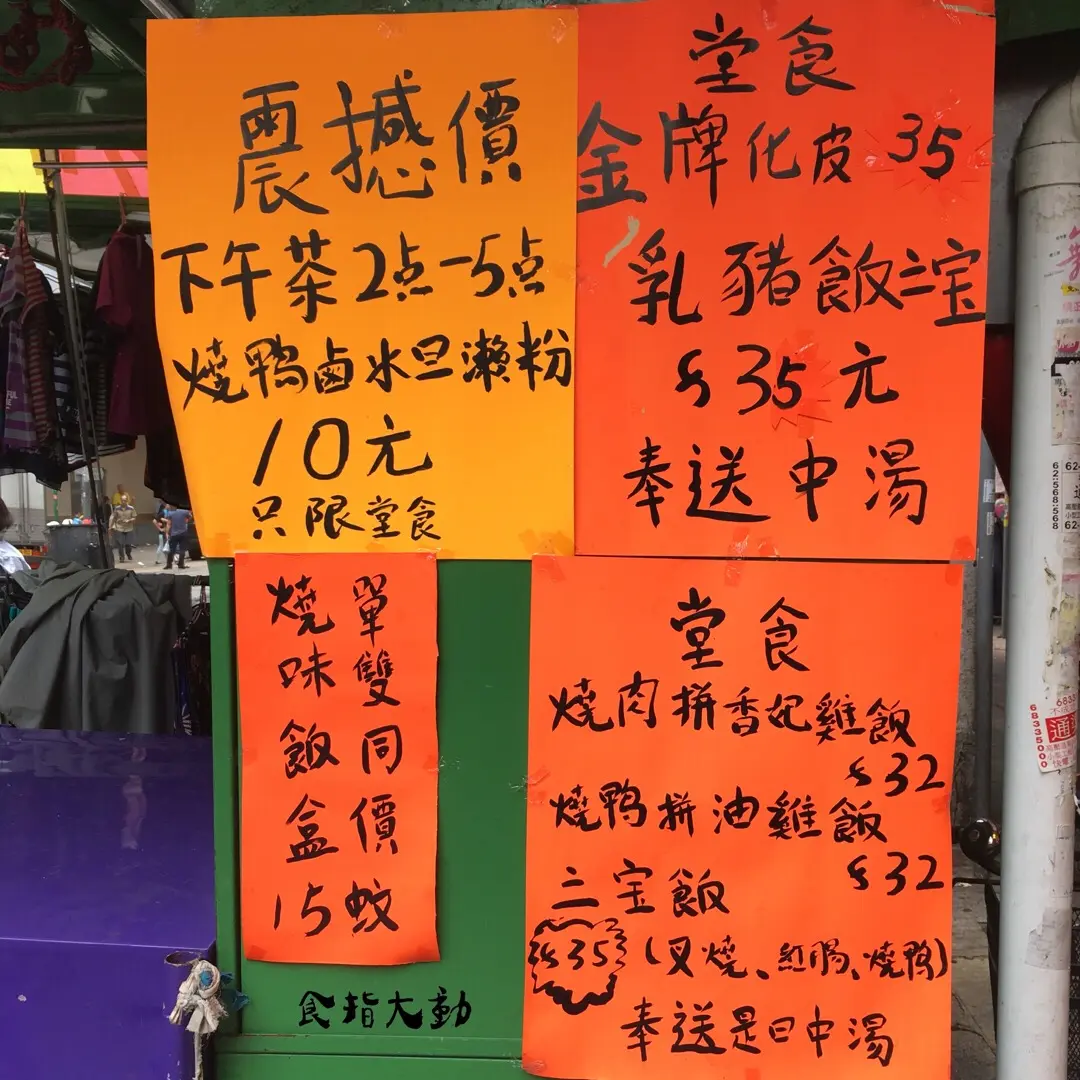 震撼價
下午茶2点-5点
燒鴨鹵水旦瀨粉
10元
只限堂食
堂食
金牌化皮 35
乳豬飯二宝
$35元
奉送中湯
單雙同價
燒味飯盒15蚊
食指大動
堂食
燒肉拼香妃雞飯
$32
燒鴨拼油雞飯
$32
三宝飯
$35 (叉燒、紅腸、燒鴨)
奉送是日中湯